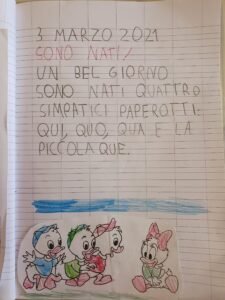 3 MARZO 2021
SONO NATI!
UN BEL GIORNO
SONO NATI QUATTRO
SIMPATICI PAPEROTTI:
QUI, QUO, QUA E LA
PICCOLA QUE.